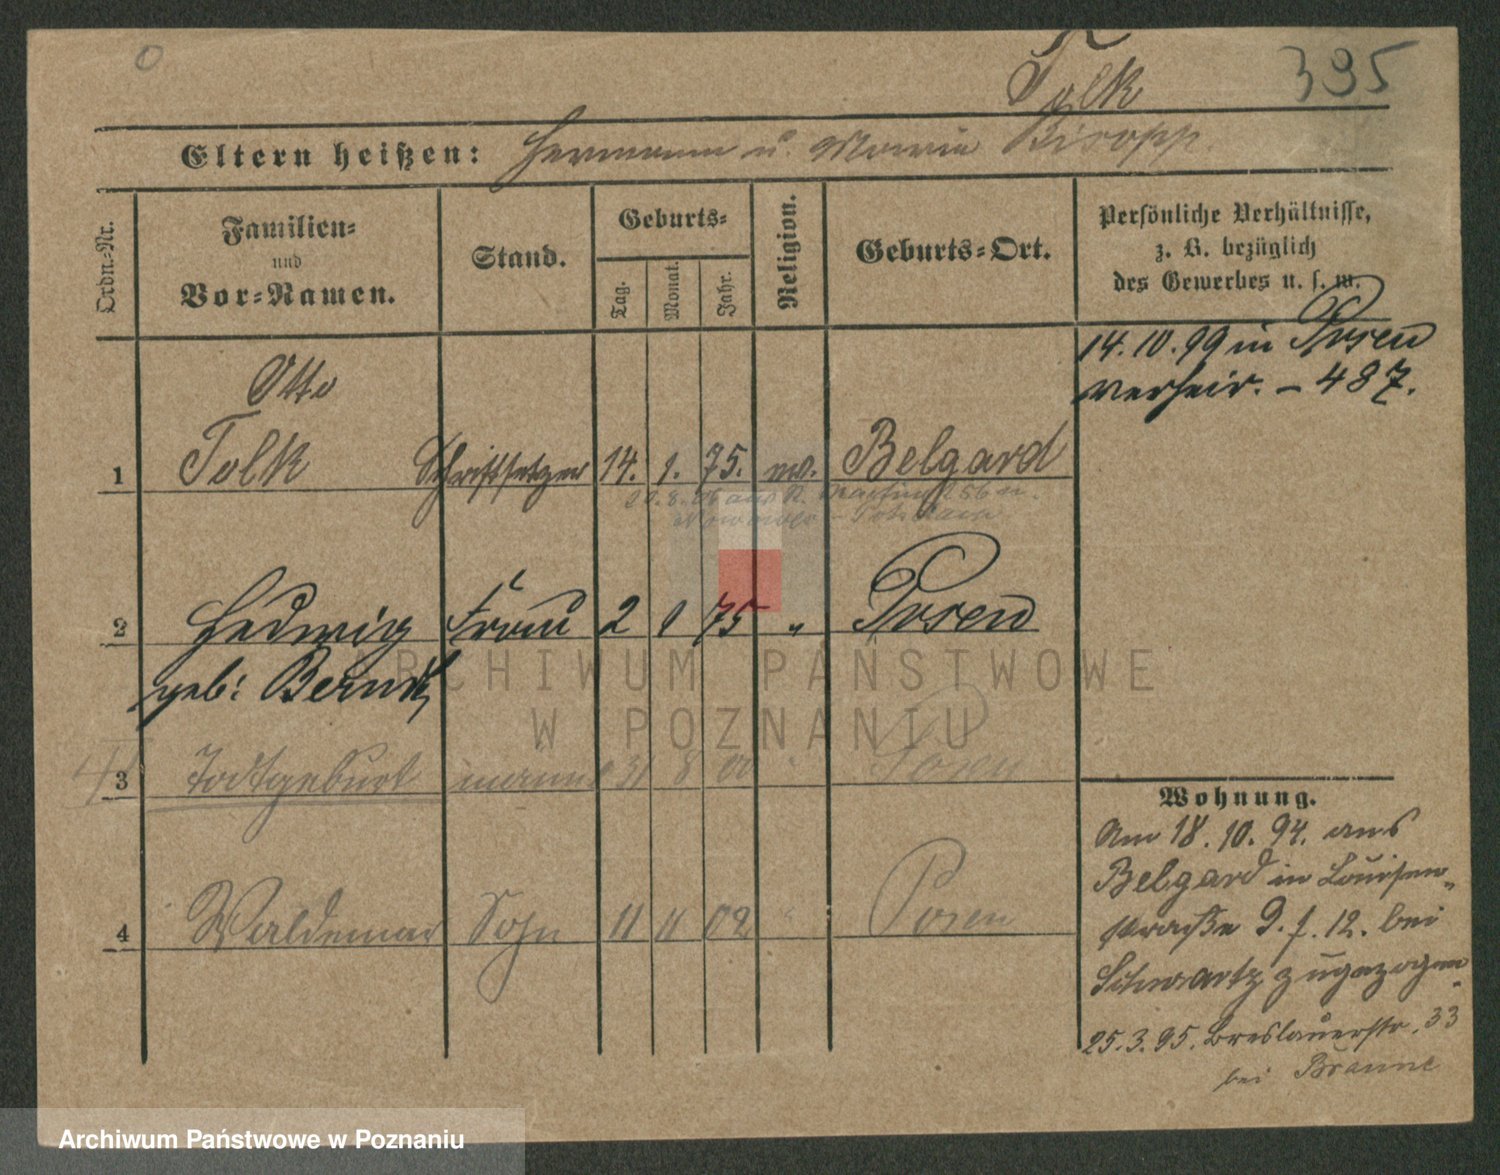 0
Tolk
395
Eltern heißen: Hermann u. Marie Bisopp.
Ordn.-Nr.
Familien-
und
Vor-Namen.
Stand.
Geburts-
Tag.
Monat.
Jahr.
Religion.
Geburts-Ort.
Persönliche Verhältnisse,
z. B. bezüglich
des Gewerbes u. s. w.
14. 10. 99 in Posen
verheir. - 487.
Otto
1 Tolk Schriftsetzer 14. 1. 75. ev. Belgard
2 Hedwig Frau 2 1 75 " Posen
geb: Berndt
3 Todtgeburt männl 31 8 00 " Posen
4 Waldemar Sohn 11 11 02 " Posen
Wohnung.
Am 18. 10. 94. aus
Belgard in Louisen-
straße 9. f. 12. bei
Schwartz zugezogen.
25. 3. 95. Breslauerstr. 33
bei Braune
ARCHIWUM PAŃSTWOWE
W POZNANIU
Archiwum Państwowe w Poznaniu